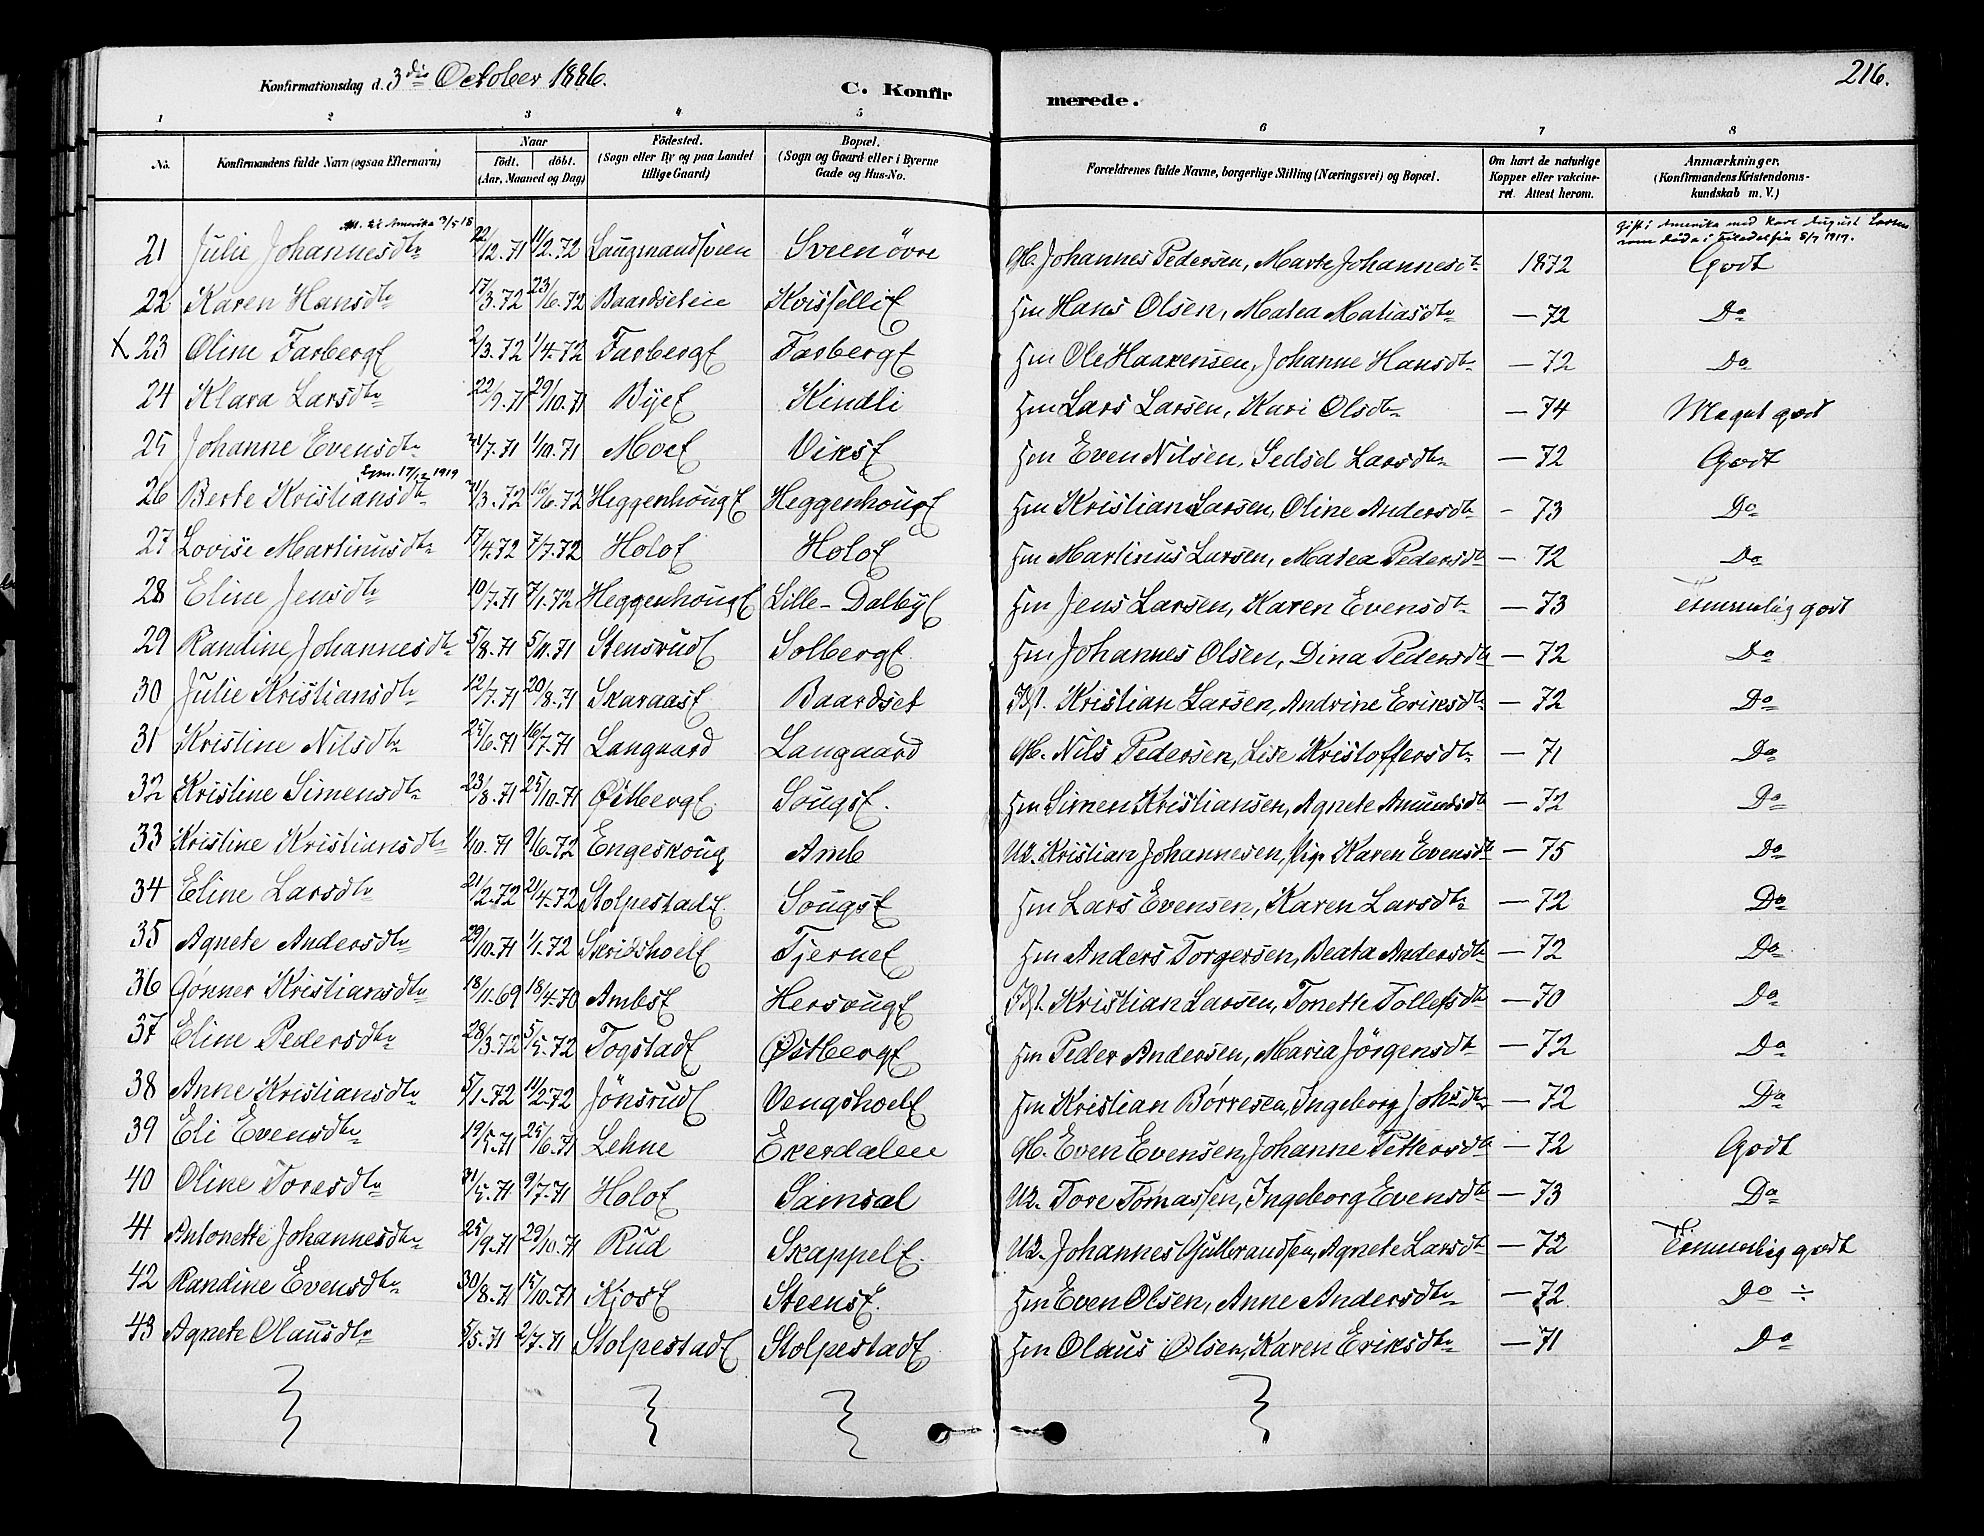 216.
Konfirmationsdag d. 3die October 1886.
C. Konfirmerede.
1 2 3 4 5 6 7 8
No. Konfirmandens fulde Navn (ogsaa Efternavn) Naar født. døbt. (Aar, Maaned og Dag) Fødested. (Sogn eller By og paa Landet tillige Gaard) Bopæl. (Sogn og Gaard eller i Byerne Gade og Hus-No. Forældrenes fulde Navne, borgerlige Stilling (Næringsvei) og Bopæl. Om havt de naturlige Kopper eller vakcineret. Attest herom. Anmærkninger, (Konfirmandens Kristendomskundskab m. V.)
Att. til Amerika 3/5 18 Gift i Amerika med Karl August Larsen
21 Julie Johannesdtr 22/12.71 11/2.72 Laugmandsveen Sveen øvre G. Johannes Pedersen, Marte Johannesdtr 1872 Godt
22 Karen Hansdtr 17/3.72 23/6.72 Baardseteie Kvisselli E Hm Hans Olsen, Matea Matiasdtr — 72 Do
X 23 Oline Farberg E 2/3.72 1/4.72 Farberg E Farberg E Hm Ole Haakensen, Johanne Hansdtr — 72 Do
24 Klara Larsdtr 22/9.71 29/10.71 Bye E Kindli Hm Lars Larsen, Kari Olsdtr — 74 Meget godt
25 Johanne Evensdtr 31/7.71 1/10.71 Moe E Viks E Hm Even Nilsen, Sedsel Larsdtr — 72 Godt
Exm. 17/12 1919
26 Berte Kristiansdtr 31/3.72 16/6.72 Heggenhoug E Heggenhoug E Hm Kristian Larsen, Oline Andersdtr - 73 Do
27 Lovise Martinusdtr 17/4.72 7/7.72 Holo E Holo E Hm Martinus Larsen, Matea Pedersdtr — 72 Do
28 Eline Jensdtr 10/7.71 7/1.72 Heggenhoug E Lille-Dalby E Hm Jens Larsen, Karen Evensdtr — 73 Temmelig godt
29 Randine Johannesdtr 5/8.71 5/11.71 Stensrud E Solberg E Hm Johannes Olsen, Dina Pedersdtr — 72 Do
30 Julie Kristiansdtr 12/7.71 20/8.71 Skaraas E Baardset Kristian Larsen, Andrine Eriksdtr — 72 Do
31 Kristine Nilsdtr 25/6.71 16/7.71 Langaard Langaard G. Nils Pedersen, Lise Kristoffersdtr — 71 Do
32 Kristine Simensdtr 23/8.71 25/10.71 Østberg E Sougs E. Hm Simen Kristiansen, Agnete Amundsdtr — 72 Do
33 Kristine Kristiansdtr 1/10.71 9/6.72 Engeskoug Amb Uk. Kristian Johannesen, Pige Karen Evensdtr — 75 Do
34 Eline Larsdtr 21/2.72 21/4.72 Stolpestad E Sougs E Hm Lars Evensen, Karen Larsdtr — 72 Do
35 Agnete Andersdtr 29/10.71 1/1.72 Skridshoel E Tjerne E Hm Anders Torgersen, Beata Andersdtr — 72 Do
36 Gønner Kristiansdtr 18/11.69 18/4.70 Ambs E Hersoug E Kristian Larsen, Tonette Tollefsdtr — 70 Do
37 Eline Pedersdtr 28/3.72 5/5.72 Togstad E Østberg E Hm Peder Andersen, Maria Jörgensdtr — 72 Do
38 Anne Kristiansdtr 5/1.72 11/2.72 Jönsrud E Vengshoel E Hm Kristian Børresen, Ingeborg Johsdtr — 72 Do
39 Eli Evensdtr 19/5.71 25/6.71 Lehne Ekerdalen G. Even Evensen, Johanne Pettersdtr — 72 Godt
40 Oline Toresdtr 31/5.71 9/7.71 Holo E Samsal Uk. Tore Tomassen, Ingeborg Evensdtr — 73 Do
41 Antonette Johannesdtr 25/9.71 29/10.71 Rud Skappel E Uk. Johannes Gulbrandsen, Agnete Larsdtr — 72 Temmelig godt
42 Randine Evensdtr 30/8.71 15/10.71 Kjos E Steens E. Hm Even Olsen, Anne Andersdtr — 72 Do ÷
43 Agnete Olausdtr 5/5.71 2/7.71 Stolpestad E Stolpestad E Hm Olaus Olsen, Karen Eriksdtr — 71 Do